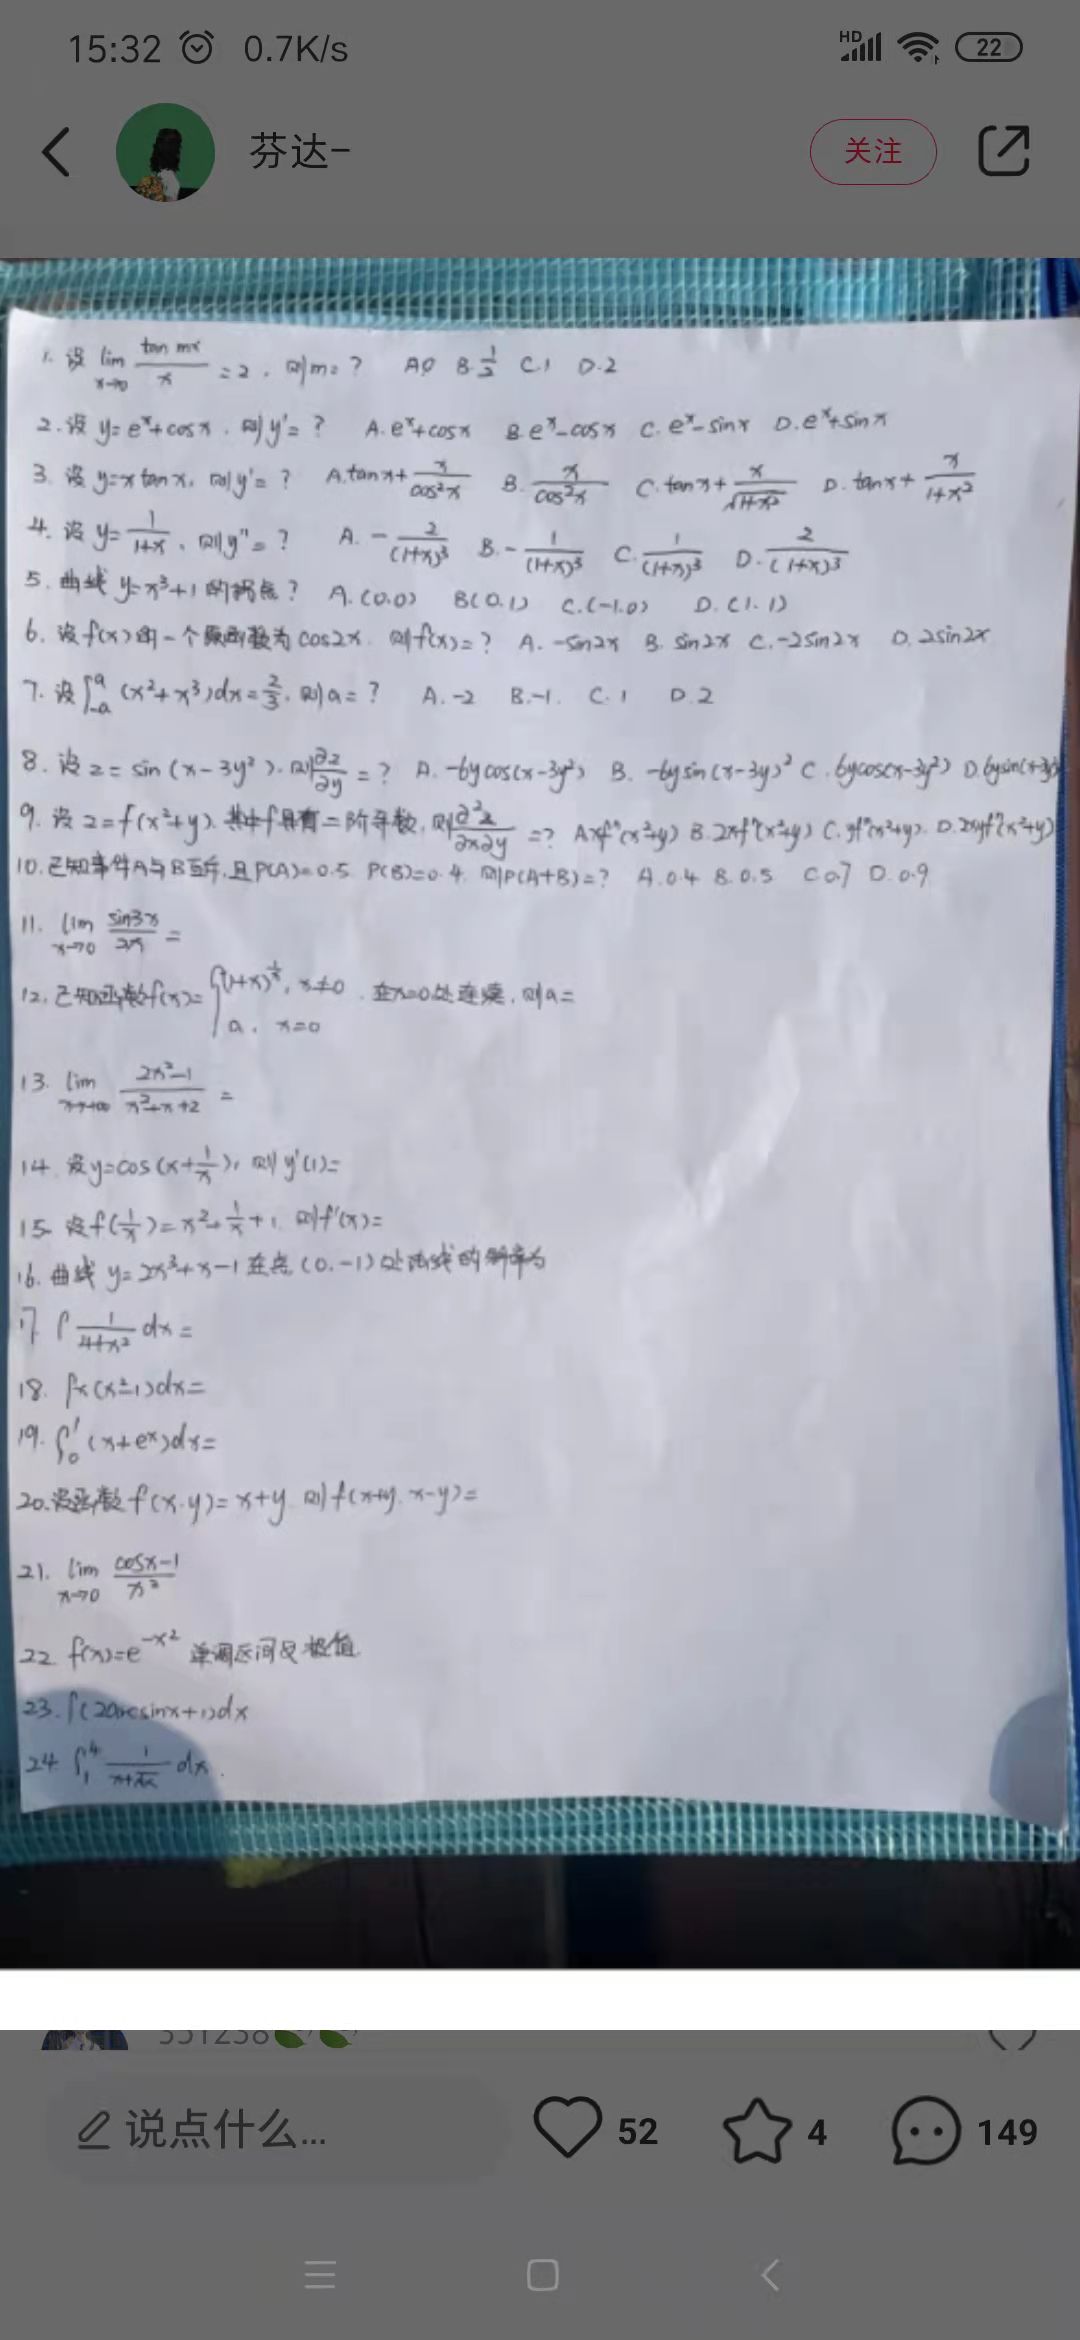 15:32 0.7K/s HD 22
芬达- 关注
1. 设 lim x→0 tan mx / x = 2, 则m=? A.0 B.1/2 C.1 D.2
2. 设 y=e^x+cosx, 则y'=? A.e^x+cosx B.e^x-cosx C.e^x-sinx D.e^x+sinx
3. 设 y=xtanx, 则y'=? A.tanx+x/cos²x B.x/cos²x C.tanx+x/√(1+x²) D.tanx+x/(1+x²)
4. 设 y=1/(1+x), 则y"=? A.-2/(1+x)³ B.-1/(1+x)³ C.1/(1+x)³ D.2/(1+x)³
5. 曲线 y=x³+1 的拐点? A.(0.0) B(0.1) C.(-1.0) D.(1.1)
6. 设f(x)的一个原函数为cos2x. 则f(x)=? A.-sin2x B.sin2x C.-2sin2x D.2sin2x
7. 设∫_{-a}^{a}(x²+x³)dx=2/3. 则a=? A.-2 B.-1. C.1 D.2
8. 设z=sin(x-3y²). 则∂z/∂y=? A.-6ycos(x-3y²) B.-6ysin(x-3y)² C.6ycos(x-3y²) D.6ysin(x+3y
9. 设z=f(x²+y). 其中f具有二阶导数, 则∂²z/∂x∂y=? A.xf"(x²+y) B.2xf"(x²+y) C.yf"(x²+y). D.2xyf"(x²+y)
10. 已知事件A与B互斥, 且P(A)=0.5 P(B)=0.4. 则P(A+B)=? A.0.4 B.0.5 C.0.7 D.0.9
11. lim x→0 sin3x/2x =
12. 已知函数f(x)={(1+x)^{1/x}, x≠0 . 在x=0处连续, 则a=
a. x=0
13. lim x→∞ (2x²-1)/(x²+x+2) =
14. 设y=cos(x+1/x), 则y'(1)=
15. 设f(1/x)=x²+1/x+1. 则f'(x)=
16. 曲线 y=2x³+x-1 在点(0.-1)处法线的斜率为
17. ∫1/(4+x²)dx=
18. ∫x(x²-1)dx=
19. ∫_0^1(x+e^x)dx=
20. 设函数f(x.y)=x+y 则f(x+y. x-y)=
21. lim x→0 (cosx-1)/x²
22 f(x)=e^{-x²} 单调区间及极值
23. ∫(2arcsinx+1)dx
24 ∫_1^4 1/(x+√x) dx.
351238
说点什么... 52 4 149